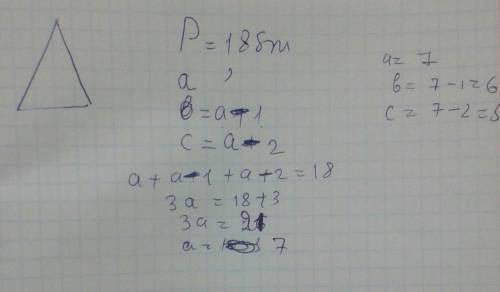 P = 18 см
a
b = a - 1
c = a - 2
a + a - 1 + a - 2 = 18
3a = 18 + 3
3a = 21
a = 7
a = 7
b = 7 - 1 = 6
c = 7 - 2 = 5